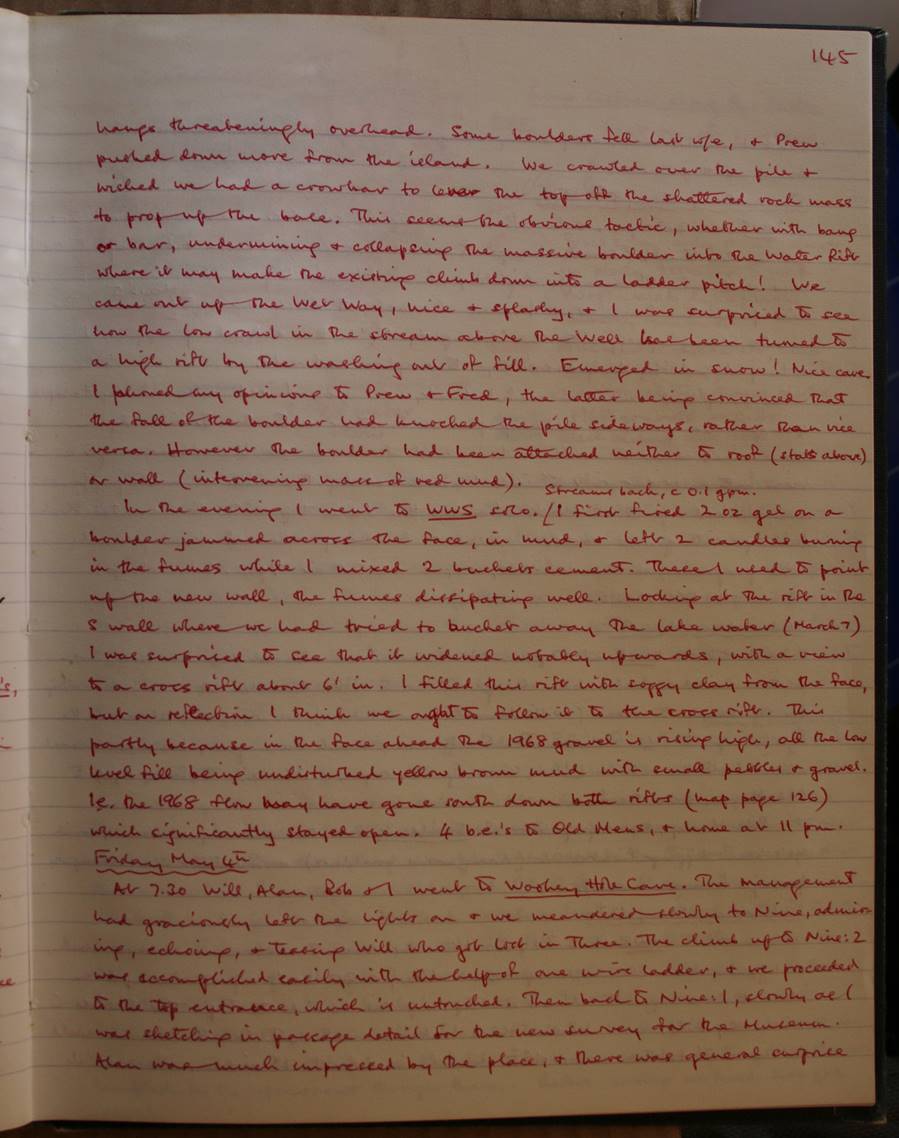 145
hangs threateningly overhead. Some boulders fell last w/e, + Prew
pushed down more from the island. We crawled over the pile +
wished we had a crowbar to lever the top off the shattered rock mass
to prop up the base. This seems the obvious tactic, whether with bang
or bar, undermining + collapsing the massive boulder into the Water Rift
where it may make the existing climb down into a ladder pitch! We
came out up the Wet Way, nice + splashy, + I was surprised to see
how the low crawl in the stream above the Well has been turned to
a high rift by the washing out of fill. Emerged in snow! Nice cave.
I phoned my opinions to Prew + Fred, the latter being convinced that
the fall of the boulder had knocked the pile sideways, rather than vice
versa. However the boulder had been attached neither to roof (stals above)
or wall (intervening mass of red mud).
Streams back, c 0.1 gpm.
In the evening I went to WWS solo. / I first fired 2 oz gel on a
boulder jammed across the face, in mud, + left 2 candles burning
in the fumes while I mixed 2 buckets cement. These I used to point
up the new wall, the fumes dissipating well. Looking at the rift in the
S wall where we had tried to bucket away the lake water (March 7)
I was surprised to see that it widened notably upwards, with a view
to a cross rift about 6' in. I filled this rift with soggy clay from the face,
but on reflection I think we ought to follow it to the cross rift. This
partly because in the face ahead the 1968 gravel is rising high, all the low
level fill being undisturbed yellow brown mud with small pebbles + gravel.
Ie. the 1968 flow may have gone south down both rifts (map page 126)
which significantly stayed open. 4 b.e.'s to Old Mens, + home at 11 pm.
Friday May 4th
At 7.30 Will, Alan, Bob + I went to Wookey Hole Cave. The management
had graciously left the lights on + we meandered slowly to Nine, admir-
ing, echoing, + teasing Will who got lost in Three. The climb up to Nine:2
was accomplished easily with the help of one wire ladder, + we proceeded
to the top entrance, which is untouched. Then back to Nine:1, slowly as I
was sketching in passage detail for the new survey for the Museum.
Alan was much impressed by the place, + there was general surprise